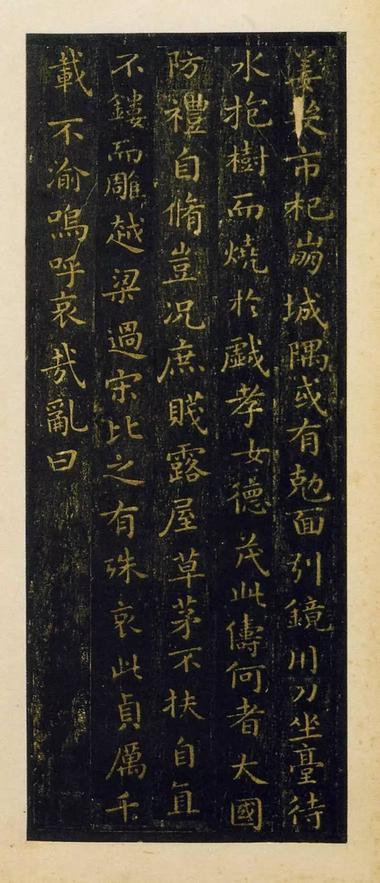 姜哭市杞崩城隅或有尅面引鏡用刀坐臺待
水抱樹而燒於戲孝女德茂此儔何者大國
防禮自脩豈況庶賤露屋草茅不扶自直
不鏤而雕越梁過宋比之有殊哀此貞厲千
載不渝嗚呼哀哉亂曰